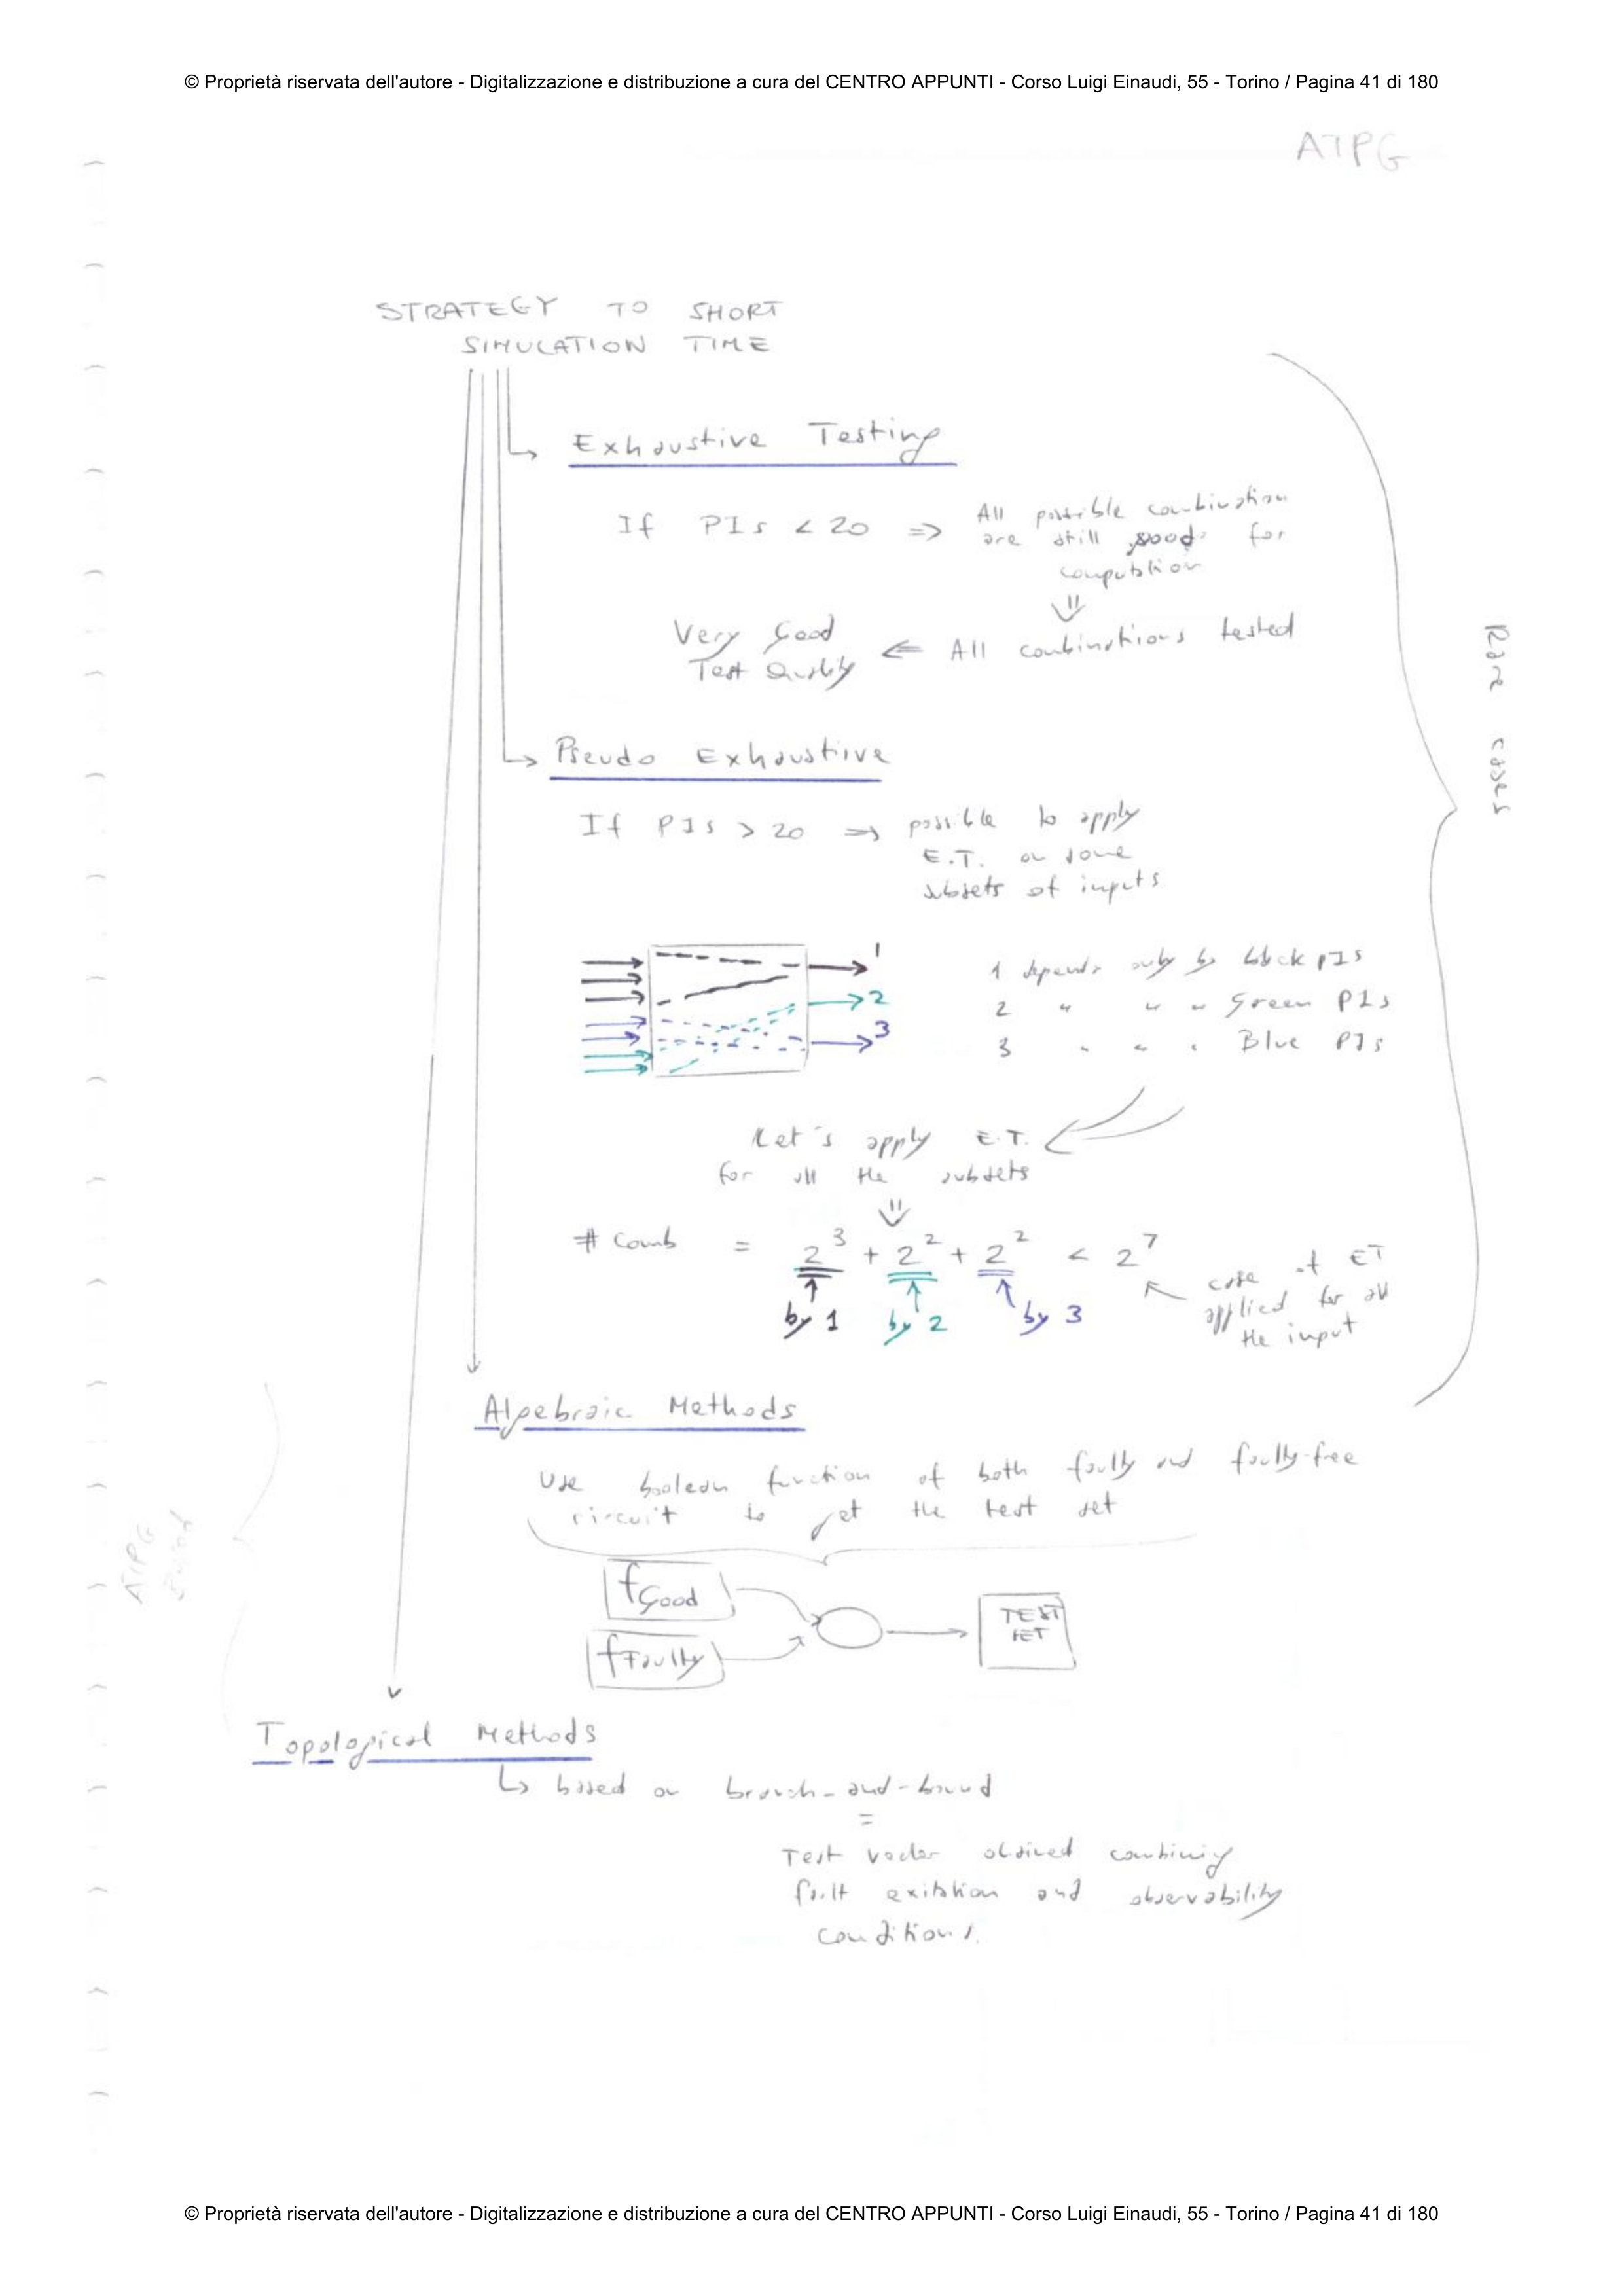 © Proprietà riservata dell'autore - Digitalizzazione e distribuzione a cura del CENTRO APPUNTI - Corso Luigi Einaudi, 55 - Torino / Pagina 41 di 180
ATPG
STRATEGY TO SHORT
SIMULATION TIME
Exhaustive Testing
If PIs < 20 => All possible combination
are still good for
computation
⇓
Very Good <= All combinations tested
Test Quality
Rare cases
Pseudo Exhaustive
If PIs > 20 => possible to apply
E.T. on some
subsets of inputs
1
2
3
1 depends only by black PIs
2 " " " Green PIs
3 " " " Blue PIs
Let's apply E.T.
for all the subsets
⇓
# Comb = 2^3 + 2^2 + 2^2 < 2^7
by 1 by 2 by 3
case of ET
applied for all
the input
Algebraic Methods
Use boolean function of both faulty and faulty-free
circuit to get the test set
f Good
f Faulty
TEST
SET
ATPG
Topological Methods
↳ based on branch-and-bound
=
Test vector obtained combining
fault exitation and observability
conditions.
© Proprietà riservata dell'autore - Digitalizzazione e distribuzione a cura del CENTRO APPUNTI - Corso Luigi Einaudi, 55 - Torino / Pagina 41 di 180